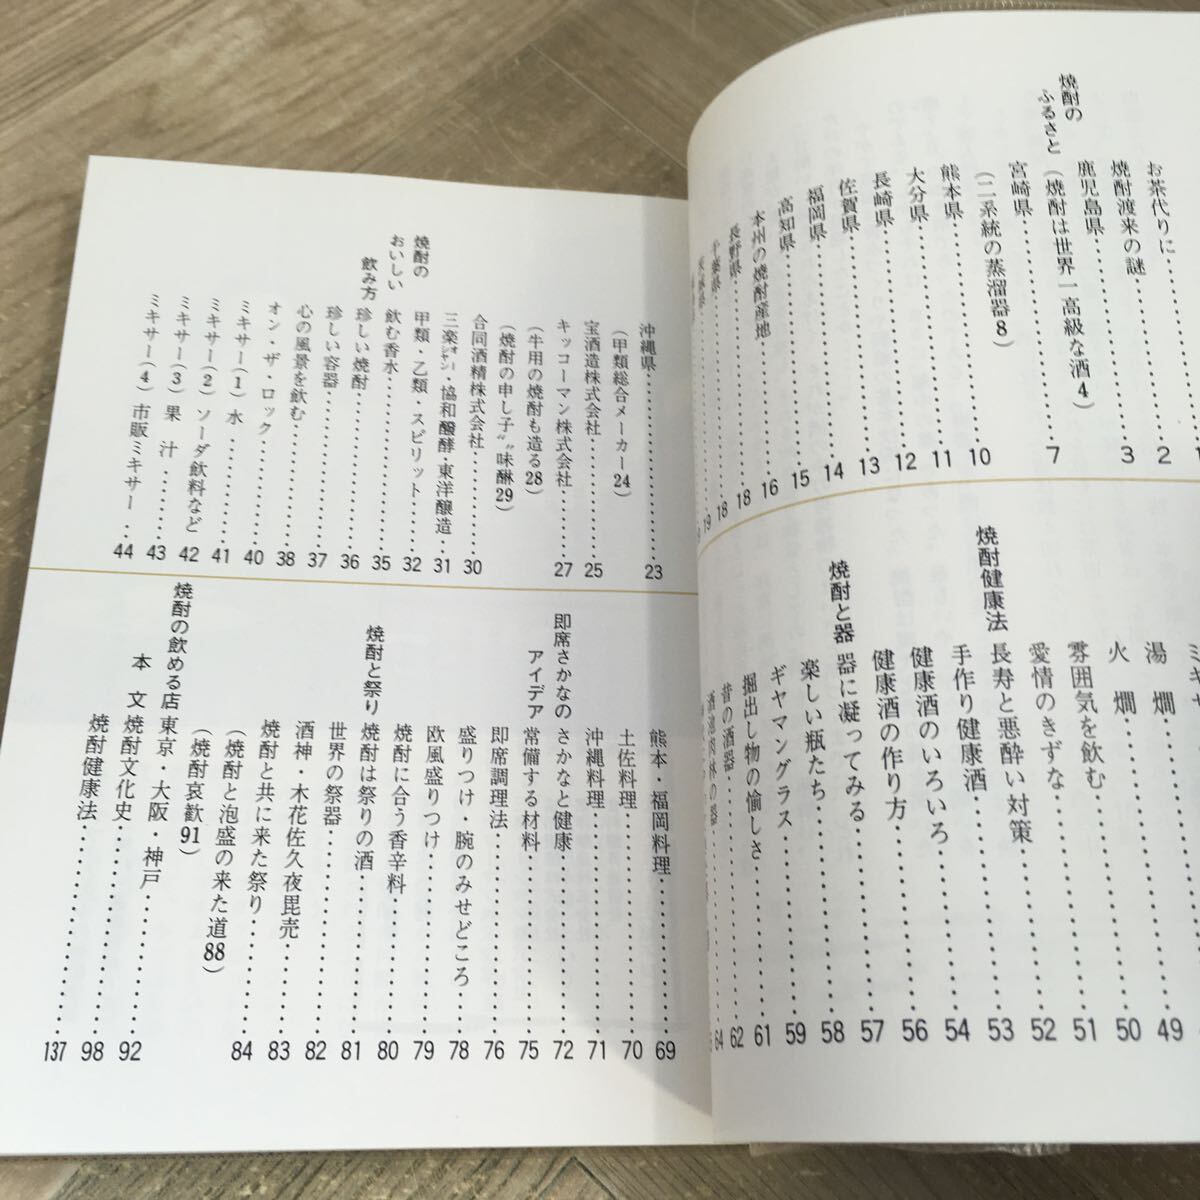 焼酎の
ふるさと
お茶代りに‥‥‥‥2
焼酎渡来の謎‥‥‥‥3
鹿児島県‥‥‥‥
(焼酎は世界一高級な酒4)
宮崎県‥‥‥‥7
(二系統の蒸溜器8)
熊本県‥‥‥‥10
大分県‥‥‥‥11
長崎県‥‥‥‥12
佐賀県‥‥‥‥13
福岡県‥‥‥‥14
高知県‥‥‥‥15
本州の焼酎産地‥‥‥‥16
長野県‥‥‥‥18
千葉県‥‥‥‥18
沖縄県‥‥‥‥23
(甲類総合メーカー24)
宝酒造株式会社‥‥‥‥25
キッコーマン株式会社‥‥‥‥27
(牛用の焼酎も造る28)
(焼酎の申し子〝味醂29)
合同酒精株式会社‥‥‥‥30
三楽オーシャン・協和醗酵・東洋醸造‥31
甲類・乙類 スピリット‥‥‥‥32
焼酎の
おいしい
飲み方
飲む香水‥‥‥‥35
珍しい焼酎‥‥‥‥36
珍しい容器‥‥‥‥37
心の風景を飲む‥‥‥‥38
オン・ザ・ロック‥‥‥‥40
ミキサー(1) 水‥‥‥‥41
ミキサー(2) ソーダ飲料など‥42
ミキサー(3) 果 汁‥‥‥‥43
ミキサー(4) 市販ミキサー‥44
湯 燗‥‥‥‥49
火 燗‥‥‥‥50
雰囲気を飲む‥‥‥‥51
愛情のきずな‥‥‥‥52
焼酎健康法
長寿と悪酔い対策‥‥‥‥53
手作り健康酒‥‥‥‥54
健康酒のいろいろ‥‥‥‥56
健康酒の作り方‥‥‥‥57
焼酎と器
器に凝ってみる‥‥‥‥58
楽しい瓶たち‥‥‥‥59
ギヤマングラス‥‥‥‥61
掘出し物の愉しさ‥‥‥‥62
昔の酒器‥‥‥‥64
酒池肉林の器‥‥‥‥
熊本・福岡料理‥‥‥‥69
土佐料理‥‥‥‥70
沖縄料理‥‥‥‥71
即席さかなの
アイデア
さかなと健康‥‥‥‥72
常備する材料‥‥‥‥75
即席調理法‥‥‥‥76
盛りつけ・腕のみせどころ‥‥78
欧風盛りつけ‥‥‥‥79
焼酎に合う香辛料‥‥‥‥80
焼酎と祭り
焼酎は祭りの酒‥‥‥‥81
世界の祭器‥‥‥‥82
酒神・木花佐久夜毘売‥‥‥‥83
焼酎と共に来た祭り‥‥‥‥84
(焼酎と泡盛の来た道88)
(焼酎哀歓91)
焼酎の飲める店
東京・大阪・神戸‥‥‥‥92
本 文
焼酎文化史‥‥‥‥98
焼酎健康法‥‥‥‥137